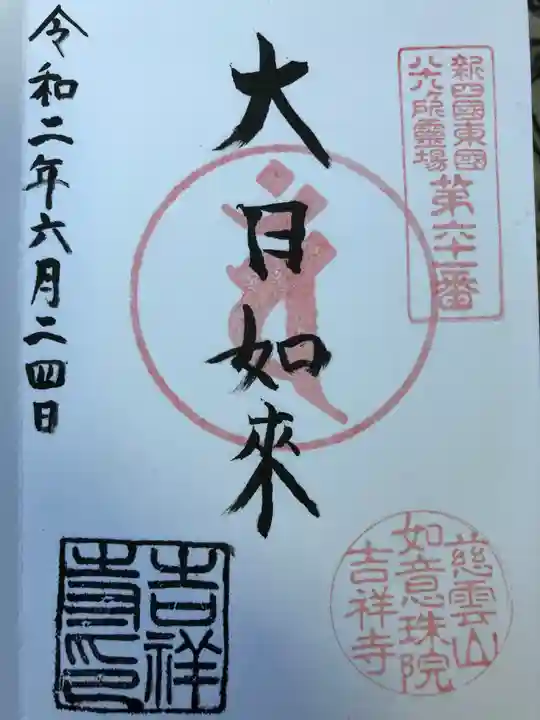 新四國東國
八十八ヶ所霊場
第六十一番
大日如來
令和二年六月二四日
慈雲山
如意珠院
吉祥寺
吉祥
寺印